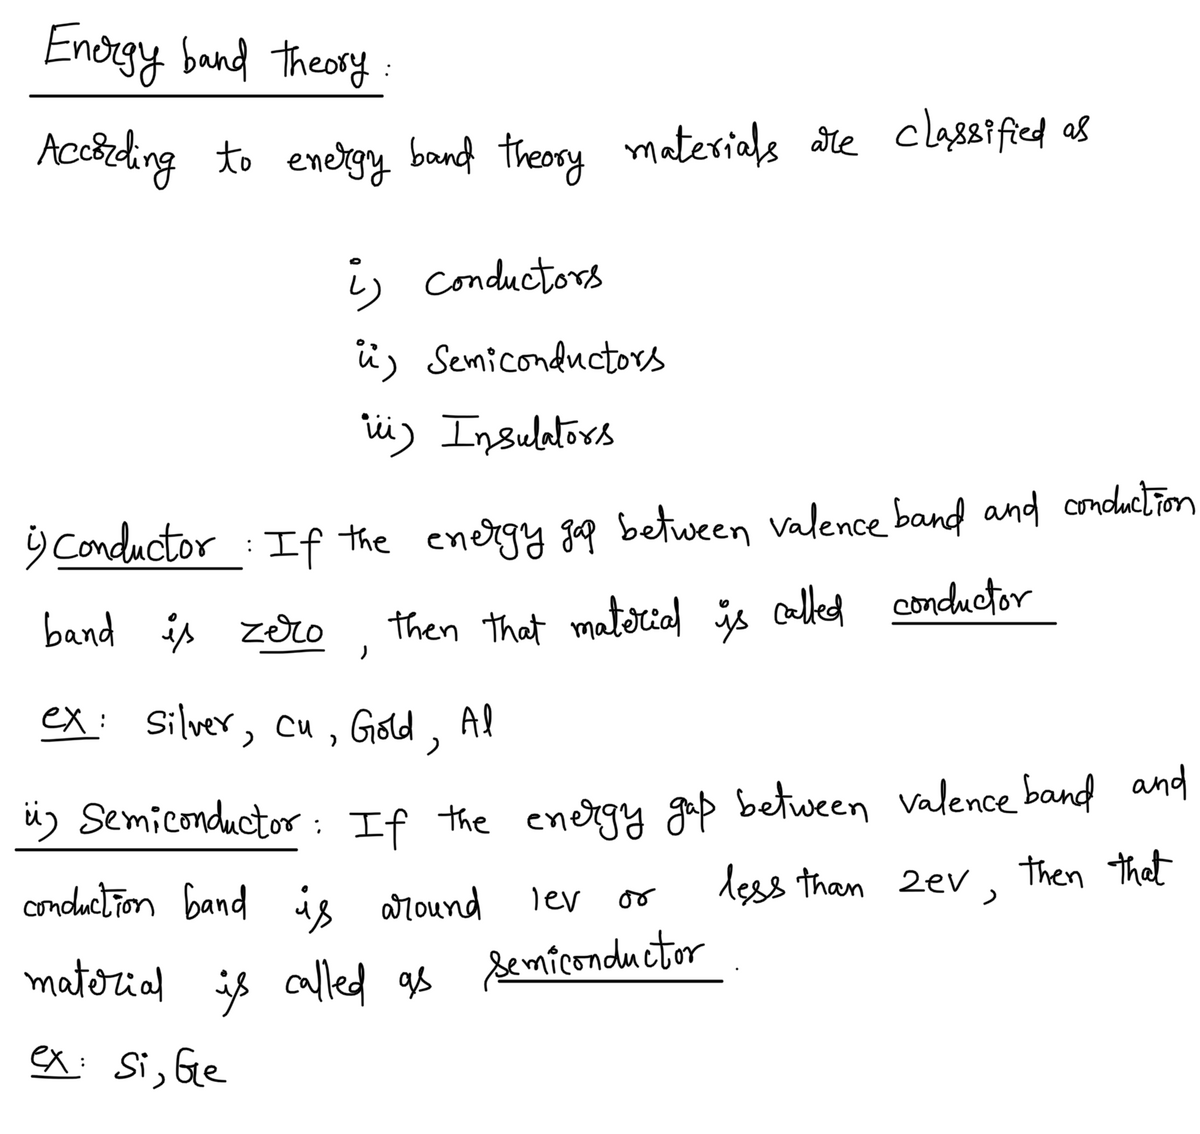 Energy band theory:
According to energy band theory materials are classified as
i) Conductors
ii) Semiconductors
iii) Insulators
i) Conductor : If the energy gap between valence band and conduction
band is zero, then that material is called conductor
ex: Silver, Cu, Gold, Al
ii) Semiconductor: If the energy gap between valence band and
conduction band is around 1ev or less than 2ev, then that
material is called as semiconductor.
ex: Si, Ge